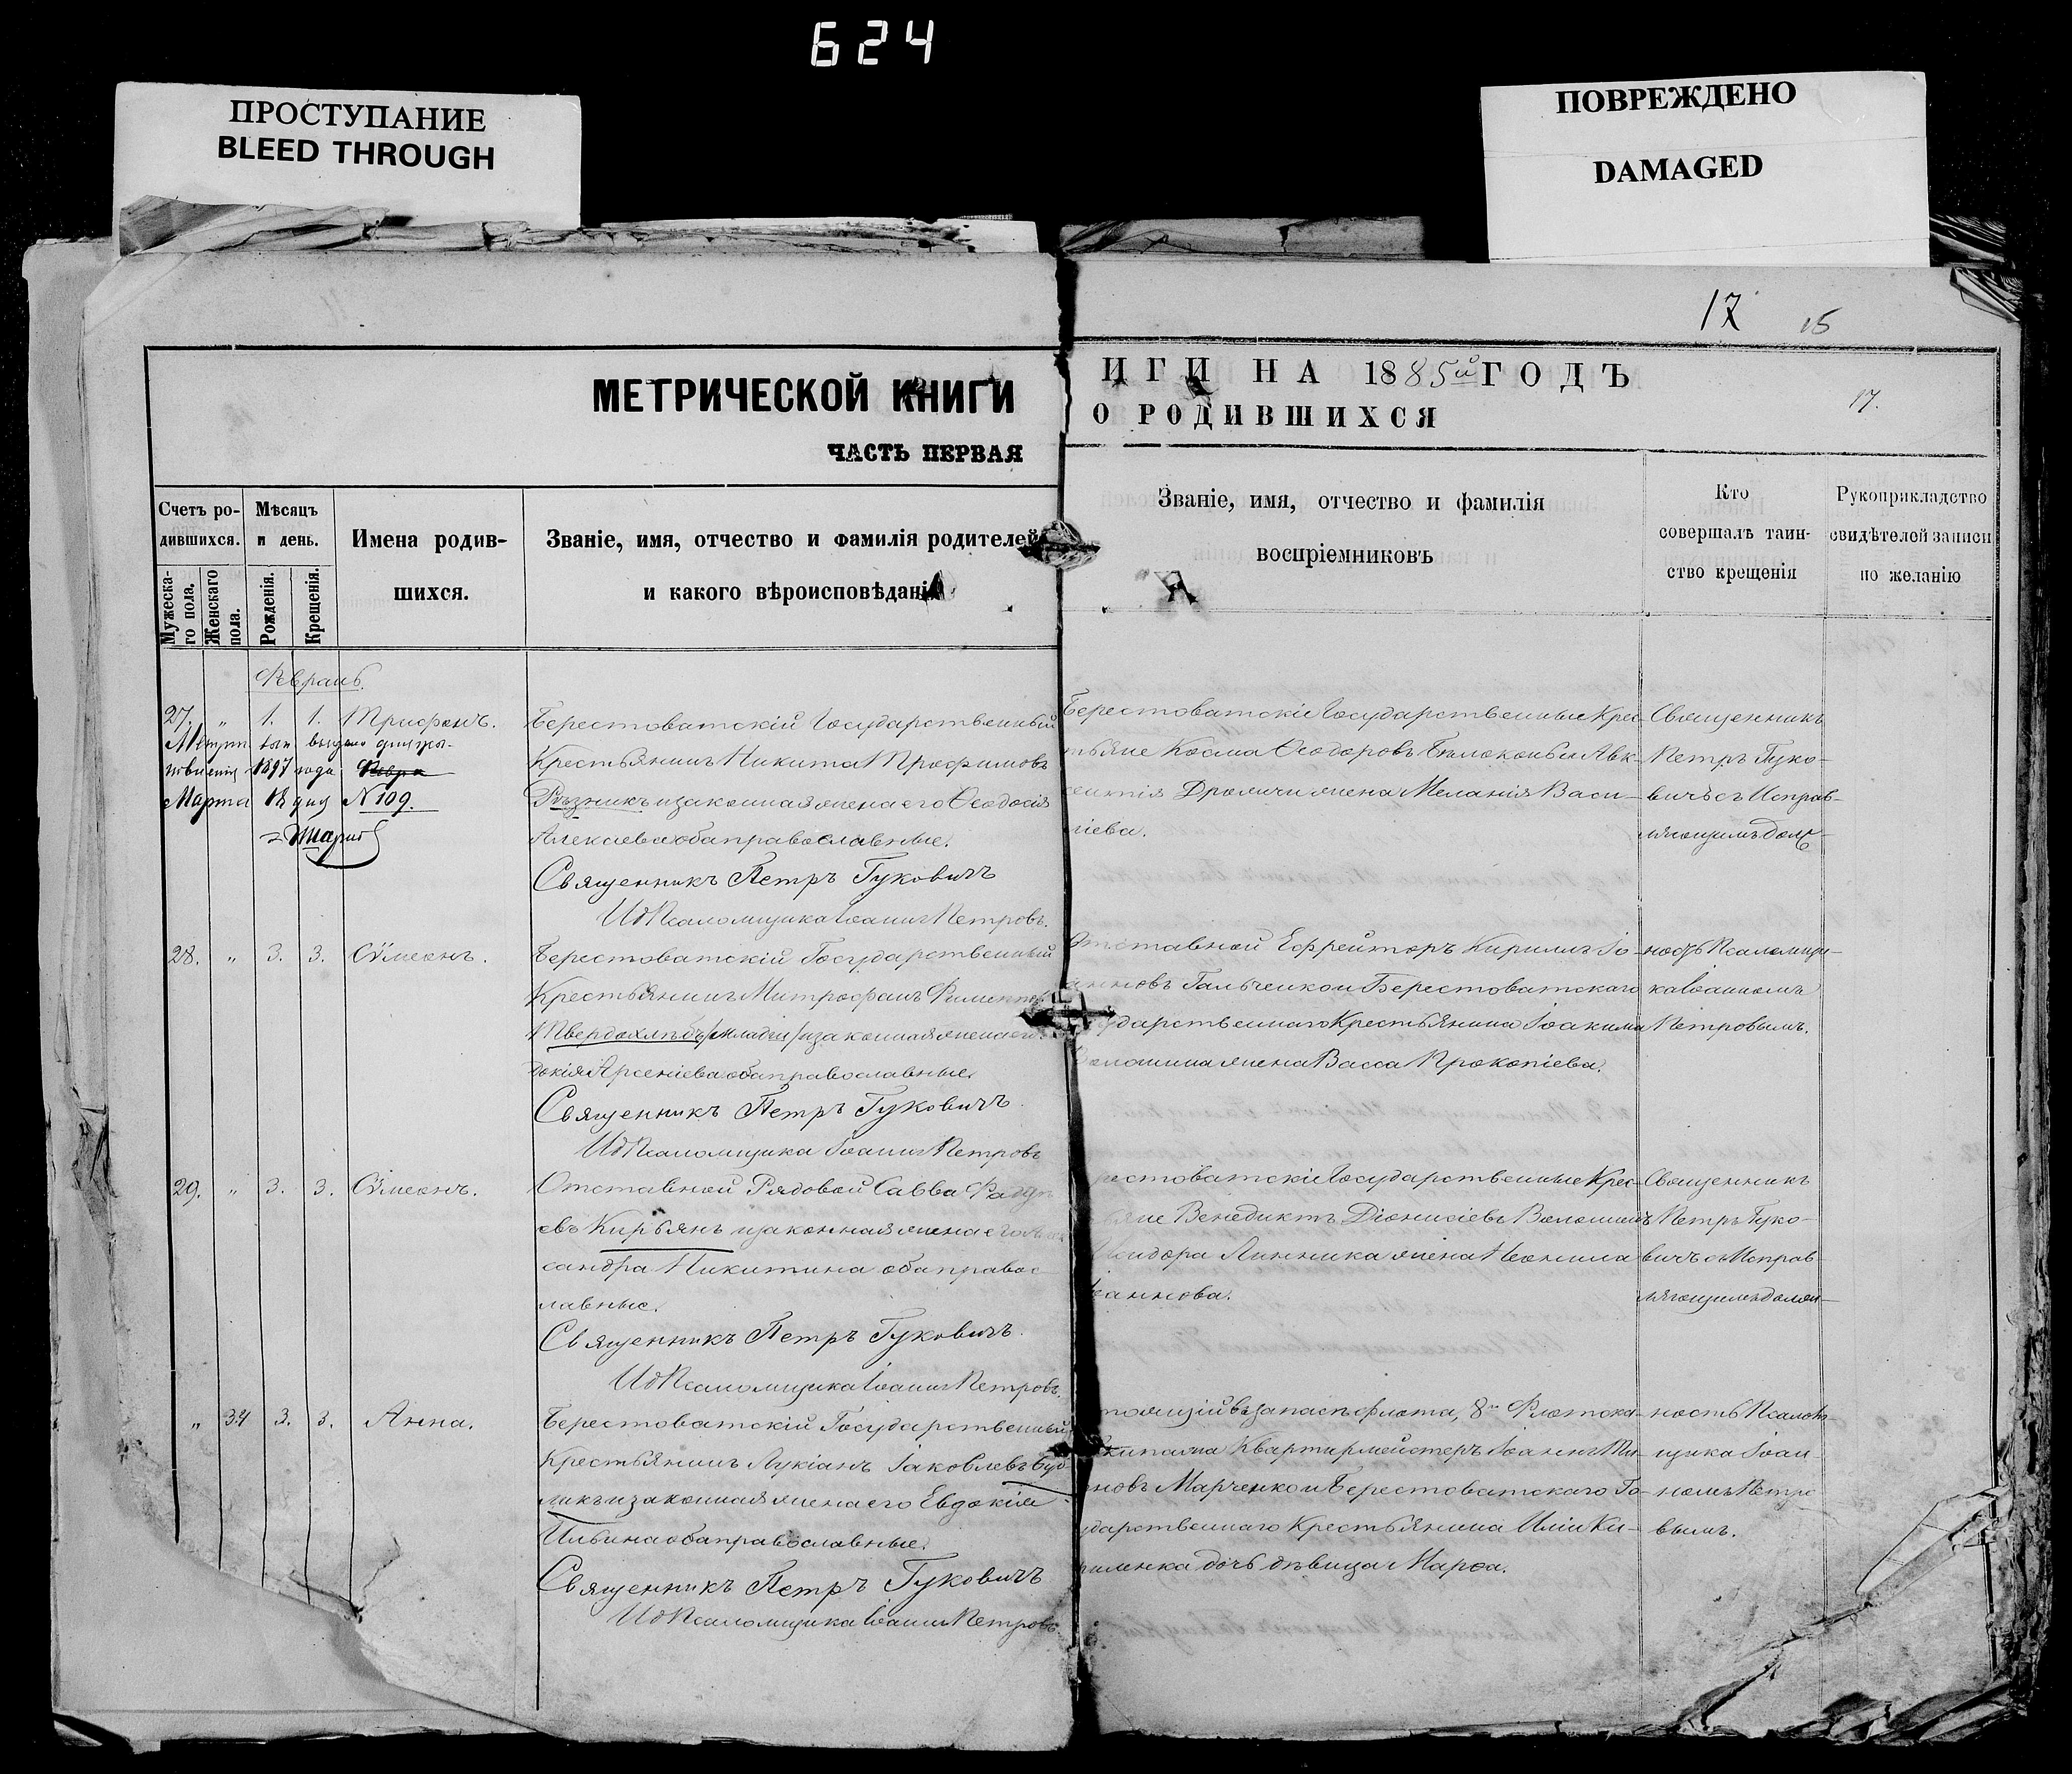 624
ПРОСТУПАНИЕ
BLEED THROUGH
ПОВРЕЖДЕНО
DAMAGED
17 15
17.
МЕТРИЧЕСКОЙ КНИГИ
ИГИ НА 1885й ГОДЪ
ЧАСТЬ ПЕРВАЯ
О РОДИВШИХСЯ
Счетъ ро-
дившихся.
Мужеска-
го пола.
Женскаго
пола.
Мѣсяцъ
и день.
Рожденія.
Крещенія.
Имена родив-
шихся.
Званіе, имя, отчество и фамилія родителей
и какого вѣроисповѣданія
Званіе, имя, отчество и фамилія
воспріемниковъ
Кто
совершалъ таин-
ство крещенія
Рукоприкладство
свидѣтелей записи
по желанію
Февраль.
27. „ 1. 1. Трифонъ.
1897 года
Марта 18 дня №109.
Берестоватскій Государственный
Крестьянинъ Никита Трофимовъ
Рѣзникъ и законная жена его Ѳеодосія
Алексіева оба православные.
Священникъ Петръ Гуковичъ
Ид Псаломщика Іоаннъ Петровъ.
Берестоватскіе Государственные Крес-
тьяне Косма Ѳеодоровъ Бѣлоконь и Авк-
сентія жена Меланія Васи-
ліева.
Священникъ
Петръ Гуко-
вичъ съ Исправ-
ляющимъ долж-
28. „ 3. 3. Сѵмеонъ.
Берестоватскій Государственный
Крестьянинъ Митрофанъ
Твердохлѣбъ /младш/ и законная жена его
докія Арсеніева оба православные.
Священникъ Петръ Гуковичъ.
Ид Псаломщика Іоаннъ Петровъ
Отставной Ефрейторъ Кириллъ Іо-
анновъ Гальченко и Берестоватскаго
Государственнаго Крестьянина Іоакима
Волошина жена Васса Прокопіева.
ность Псаломщи-
ка Іоанномъ
Петровымъ.
29. „ 3. 3. Сѵмеонъ.
Отставной Рядовой Савва
евъ Кирьянъ и законная жена его Алек
сандра Никитина оба правос
лавные.
Священникъ Петръ Гуковичъ.
Ид Псаломщика Іоаннъ Петровъ.
Берестоватскіе Государственные Крес-
тьяне Венедиктъ Діонисіевъ Волошинъ
Исидора Линника жена Неонила
Іоаннова.
Священникъ
Петръ Гуко-
вичъ съ Исправ-
ляющимъ долж-
„ 34 3. 3. Анна.
Берестоватскій Государственный
Крестьянинъ Лукіанъ Іаковлевъ Буб-
ликъ и законная жена его Евдокія
Ильина оба православные.
Священникъ Петръ Гуковичъ
Ид Псаломщика Іоаннъ Петровъ
стоящій въ запасѣ флота, 8го Флотска-
Экипажа Квартирмейстеръ Іоаннъ
новъ Марченко и Берестоватскаго Го-
ударственнаго Крестьянина Иліи Ки-
риленка дочь дѣвица Марѳа.
ность Псалом-
щика Іоан-
номъ Петро
вымъ.